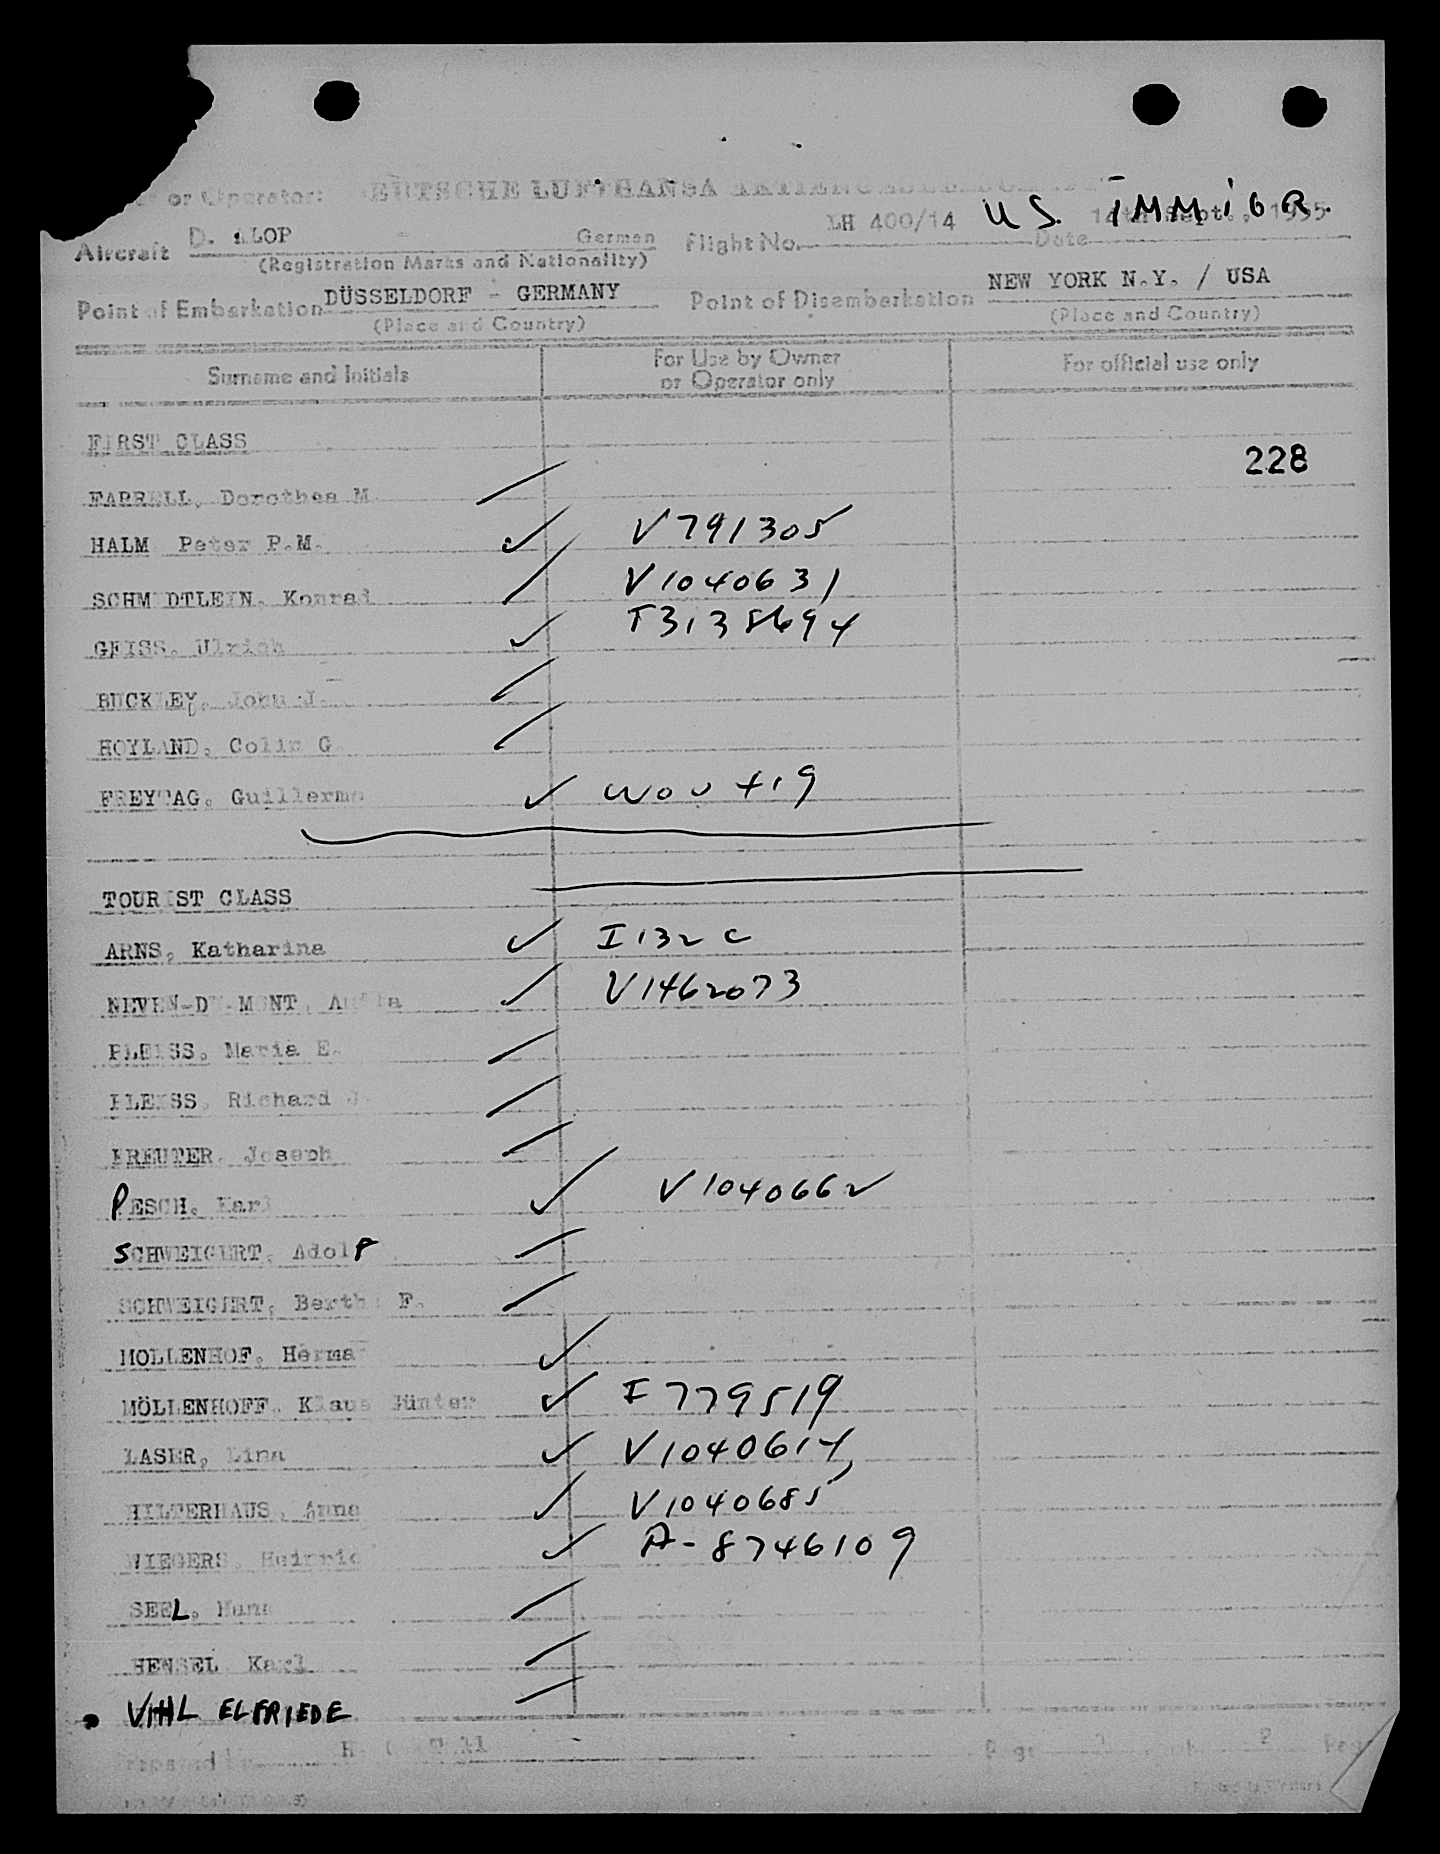 or Operator: DEUTSCHE LUFTHANSA AKTIENGESELLSCHAFT
U.S. IMMIGR.
Aircraft D. ALOP - German Flight No. LH 400/14 Date 14th Sept., 1955
(Registration Marks and Nationality)
Point of Embarkation DÜSSELDORF - GERMANY Point of Disembarkation NEW YORK N.Y. / USA
(Place and Country) (Place and Country)
Surname and Initials For Use by Owner or Operator only For official use only
FIRST CLASS
228
FARRELL, Dorothea M.
HALM Peter P.M. V791305
SCHMIDTLEIN, Konrad V1040631
GEISS, Ulrich T3138694
BUCKLEY, John J.
HOYLAND, Colin G.
FREYTAG, Guillermo
TOURIST CLASS
ARNS, Katharina I 132 C
NEVEN-DU-MONT, V1462073
PLEISS, Maria E.
PLEISS, Richard J.
KREUTER, Joseph
PESCH, Karl V1040662
SCHWEIGERT, Adolf
SCHWEIGERT, Bertha F.
MOLLENHOF, Herman
MÖLLENHOFF, Klaus Günter I 779519
LASER, Lina V1040614
HILTERHAUS, Anna V1040685
WIEGERS, Heinrich A-8746109
SEEL, Hans
HENSEL, Karl
VIHL ELFRIEDE
Prepared by H.
Page 1 2 Page